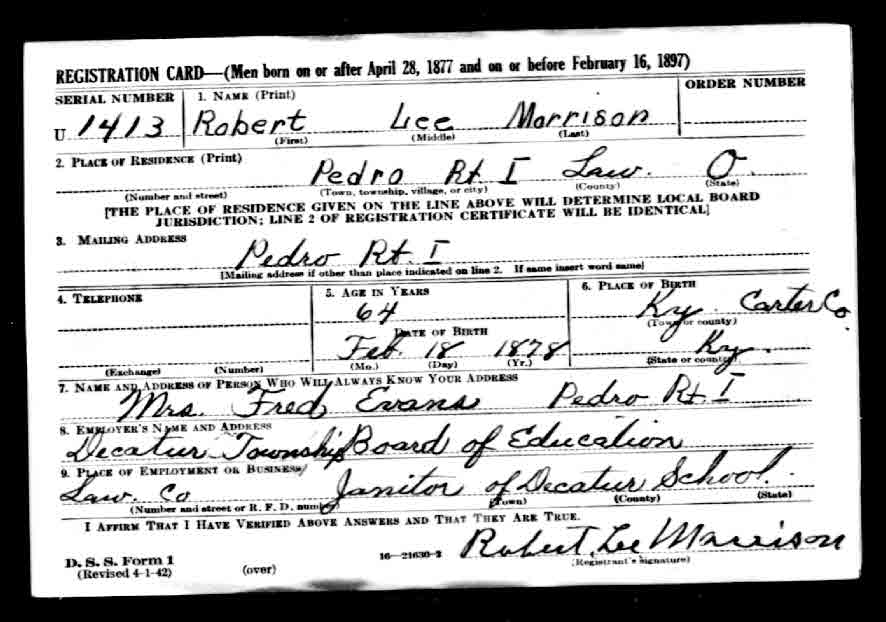 REGISTRATION CARD—(Men born on or after April 28, 1877 and on or before February 16, 1897)
SERIAL NUMBER 1. NAME (Print) ORDER NUMBER
U 1413 Robert Lee Morrison
(First) (Middle) (Last)
2. PLACE OF RESIDENCE (Print)
Pedro Rt. I Law. O.
(Number and street) (Town, township, village, or city) (County) (State)
[THE PLACE OF RESIDENCE GIVEN ON THE LINE ABOVE WILL DETERMINE LOCAL BOARD
JURISDICTION; LINE 2 OF REGISTRATION CERTIFICATE WILL BE IDENTICAL]
3. MAILING ADDRESS
Pedro Rt. I
[Mailing address if other than place indicated on line 2. If same insert word same]
4. TELEPHONE 5. AGE IN YEARS 6. PLACE OF BIRTH
64 Ky. Carter Co.
DATE OF BIRTH (Town or county)
Feb. 18 1878 Ky.
(Exchange) (Number) (Mo.) (Day) (Yr.) (State or country)
7. NAME AND ADDRESS OF PERSON WHO WILL ALWAYS KNOW YOUR ADDRESS
Mrs. Fred Evans Pedro Rt. I
8. EMPLOYER'S NAME AND ADDRESS
Decatur Township Board of Education
9. PLACE OF EMPLOYMENT OR BUSINESS
Law. Co Janitor of Decatur School.
(Number and street or R. F. D. number) (Town) (County) (State)
I AFFIRM THAT I HAVE VERIFIED ABOVE ANSWERS AND THAT THEY ARE TRUE.
Robert Lee Morrison
D. S. S. Form 1 16—21630-2 (Registrant's signature)
(Revised 4-1-42) (over)